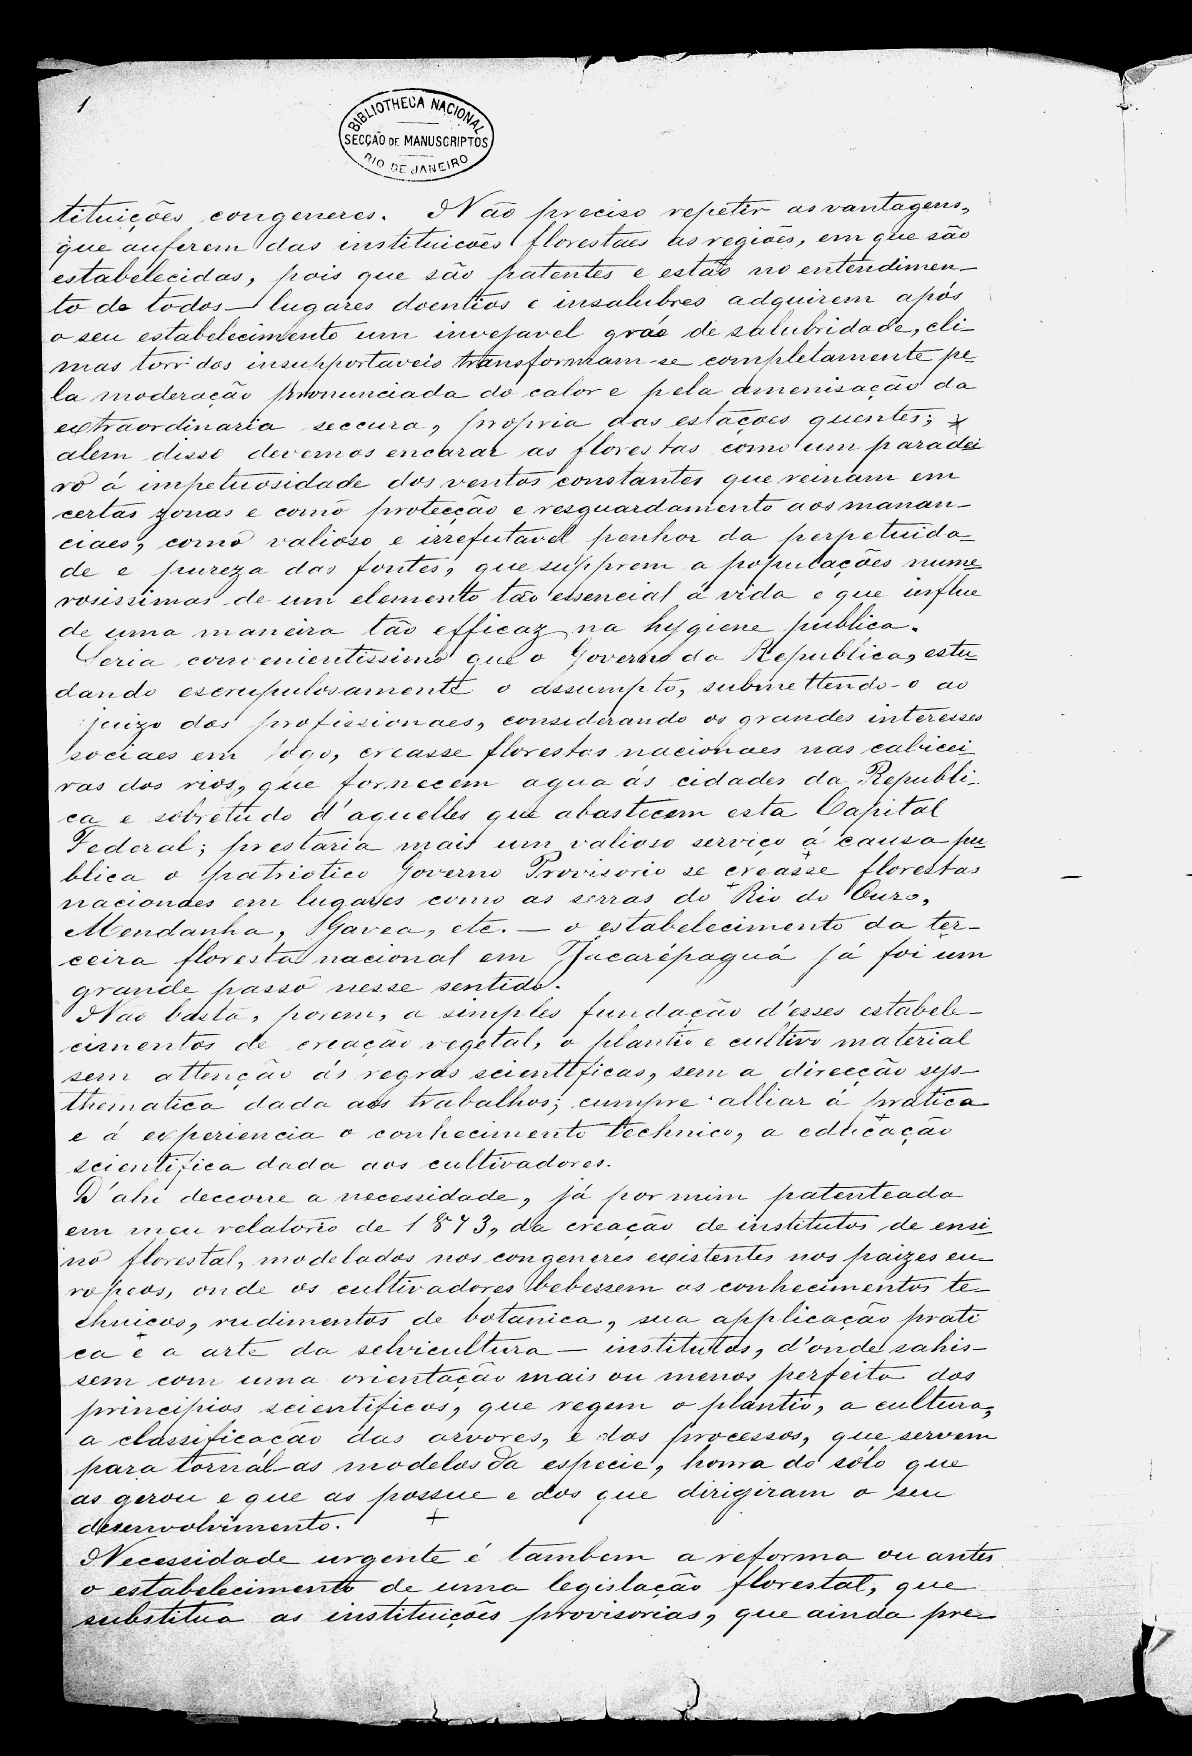 1
BIBLIOTHECA NACIONAL
SECÇÃO DE MANUSCRIPTOS
RIO DE JANEIRO
tituições congeneres. Não preciso repetir as vantagens,
que auferem das instituicões florestaes as regiões, em que são
estabelecidas, pois que são patentes e estão no entendimen-
to de todos — lugares doentios e insalubres adquirem após
o seu estabelecimento um invejavel gráo de salubridade, cli-
mas torridos insupportaveis transformam-se completamente pe-
la moderação pronunciada do calor e pela amenisação da
extraordinaria seccura, propria das estações quentes; x
alem disso devemos encarar as florestas como um paradei
ro á impetuosidade dos ventos constantes que reinam em
certas zonas e como protecção e resguardamento aos manan-
ciaes, como valioso e irrefutavel penhor da perpetuida-
de e pureza das fontes, que supprem a populações nume-
rosissimas de um elemento tão essencial á vida e que influe
de uma maneira tão efficaz na hygiene publica.
Seria convenientissimo que o Governo da Republica, estu-
dando escrupulosamente o assumpto, submettendo-o ao
juizo dos profissionaes, considerando os grandes interesses
sociaes em jogo, creasse florestas nacionaes nas cabicei-
ras dos rios, que fornecem agua ás cidades da Republi-
ca e sobretudo d'aquelles que abastecem esta Capital
Federal; prestaria mais um valioso serviço á causa pu-
blica o patriotico Governo Provisorio se creasse florestas
nacionaes em lugares como as serras do + Rio do Ouro,
Mendanha, Gavea, etc. — o estabelecimento da ter-
ceira floresta nacional em Jacarépaguá já foi um
grande passo nesse sentido.
Não basta, porem, a simples fundação d'esses estabele-
cimentos de creação vegetal, o plantio e cultivo material
sem attenção ás regras scientificas, sem a direcção sys-
thematica dada aos trabalhos; cumpre alliar á pratica
e á experiencia o conhecimento technico, a educação
scientifica dada aos cultivadores.
D'ahi deccorre a necessidade, já por mim patenteada
em meu relatorio de 1873, da creação de institutos de ensi
no florestal, modelados nos congeneres existentes nos paizes eu-
ropeos, onde os cultivadores bebessem os conhecimentos te-
chnicos, rudimentos de botanica, sua applicação prati
ca e a arte da selvicultura — institutos, d'onde sahis-
sem com uma orientação mais ou menos perfeita dos
principios scientificos, que regem o plantio, a cultura,
a classificação das arvores, e dos processos, que servem
para tornál-as modelos da especie, honra do sólo que
as gerou e que as possue e dos que dirigiram o seu
desenvolvimento. +
Necessidade urgente é tambem a reforma ou antes
o estabelecimento de uma legislação florestal, que
substitua as instituições provisorias, que ainda pre-